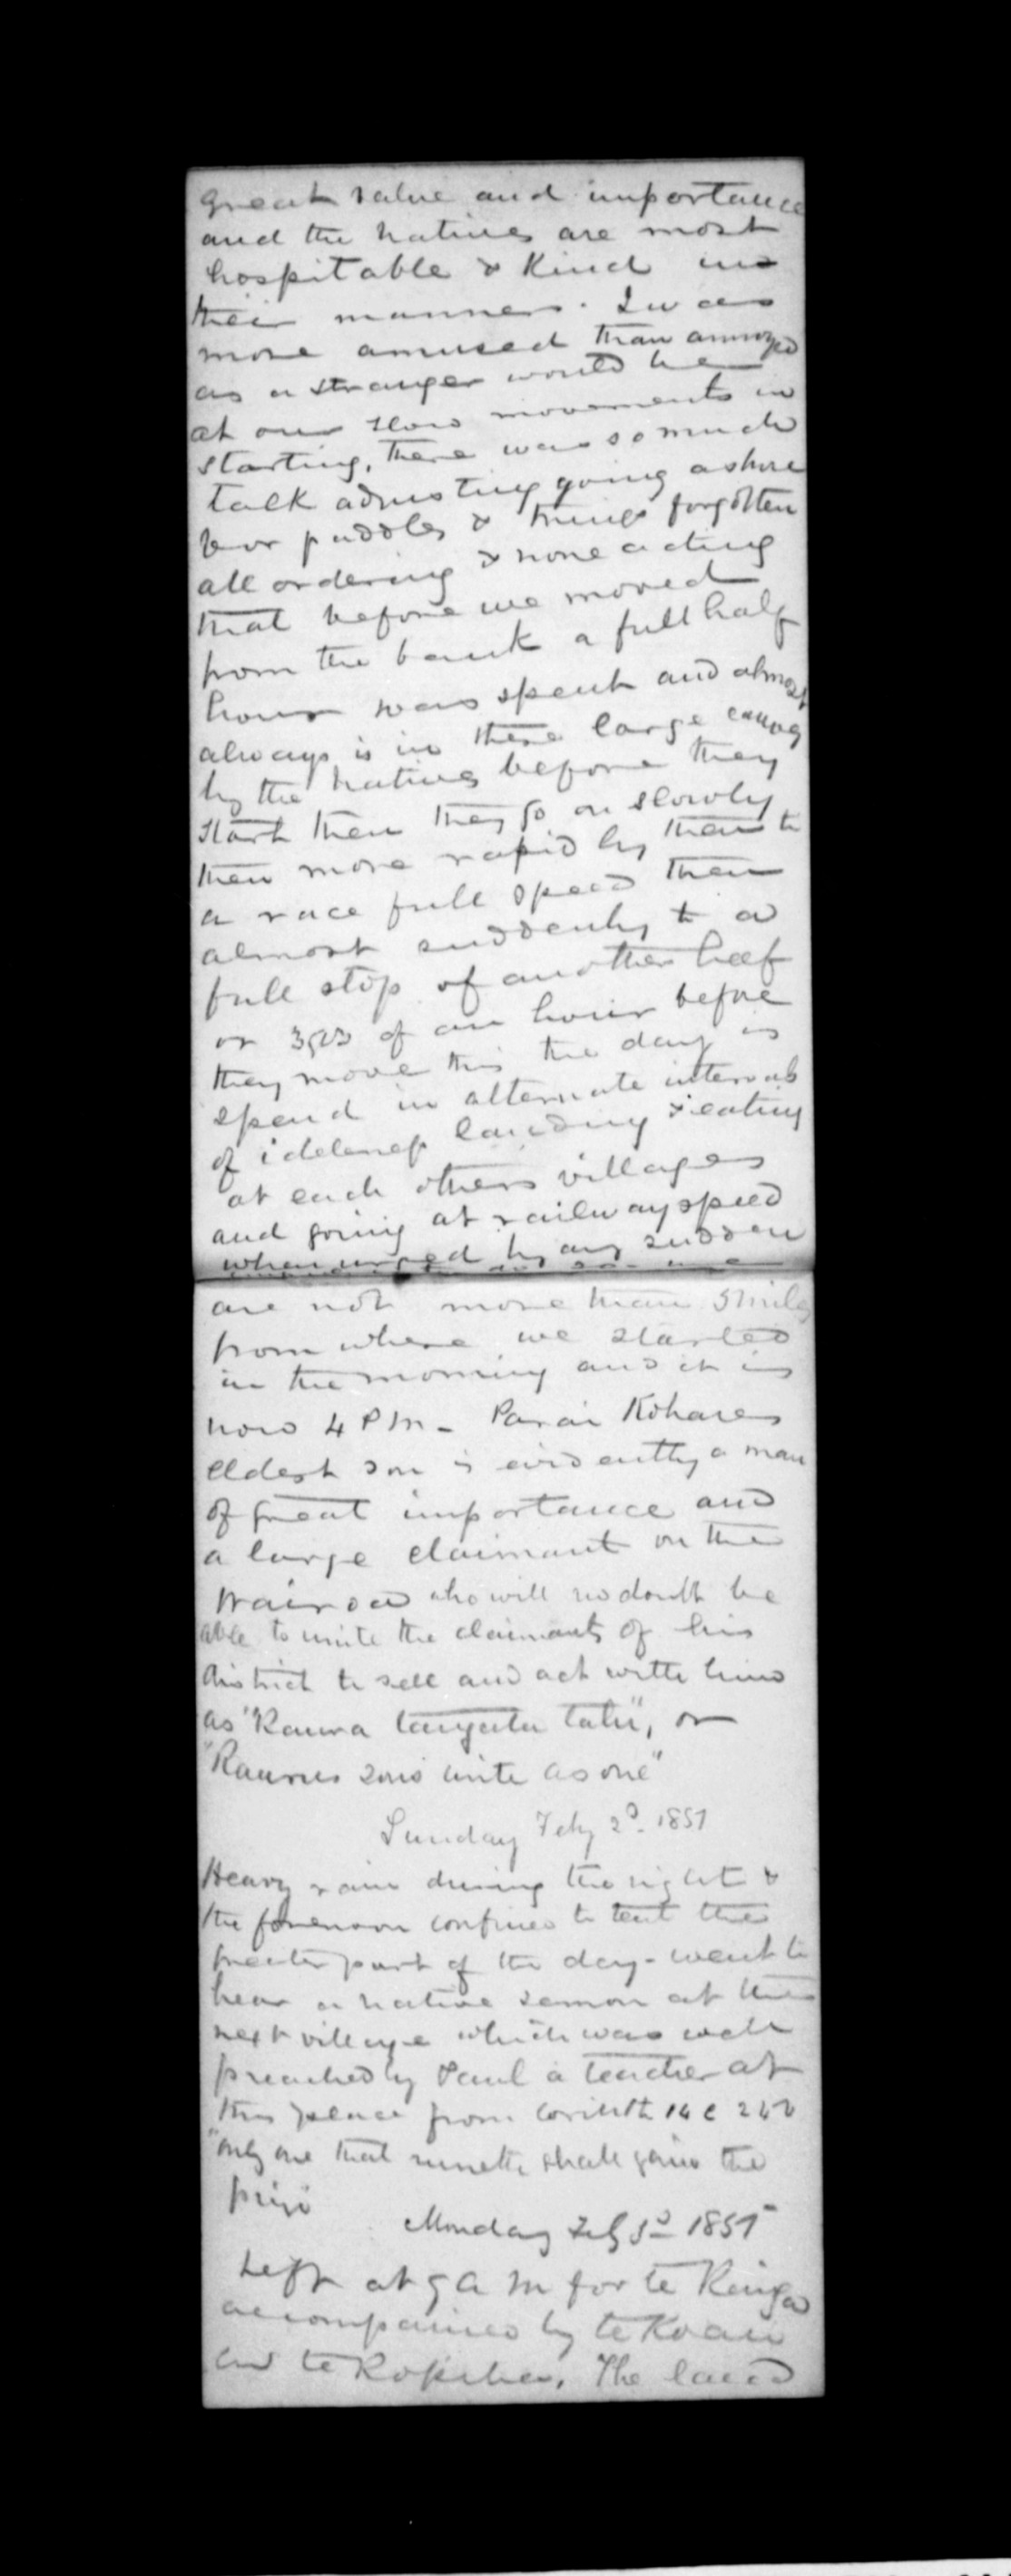 great value and importance
and the natives are most
hospitable & kind in
their manners. I was
more amused than annoyed
as a stranger would be
at our slow movements in
starting, there was so much
talk adjusting going ashore
for paddles & things forgotten
all ordering & none acting
that before we moved
from the bank a full half
hour was spent and almost
always is in these large canoes
by the natives before they
start then they go on slowly
then more rapidly then to
a race full speed then
almost suddenly to a
full stop of another half
or of an hour before
they move this the day is
spend in alternate intervals
of idleness landing & eating
at each others villages
and going at railway speed
when urged by any sudden
are not more than 5 miles
from where we started
in the morning and it is
now 4 PM -
eldest son is evidently a man
of great importance and
a large claimant on the
Wairoa who will no doubt be
able to unite the claimants of his
district to sell and act with him
as "Raura tangata tahi", or
sons unite as one"
Sunday Feby 2d. 1851
Heavy rain during the night &
the forenoon confined to tent the
greater part of the day - went to
hear a native sermon at the
next village which was well
preached by Paul a teacher at
this place from Corinth 14 c 24 v
"only one that runneth shall gain the
prize
Monday Feby 3d 1851
Left at 9 A M for te Reinga
accompanied by te
and te The land